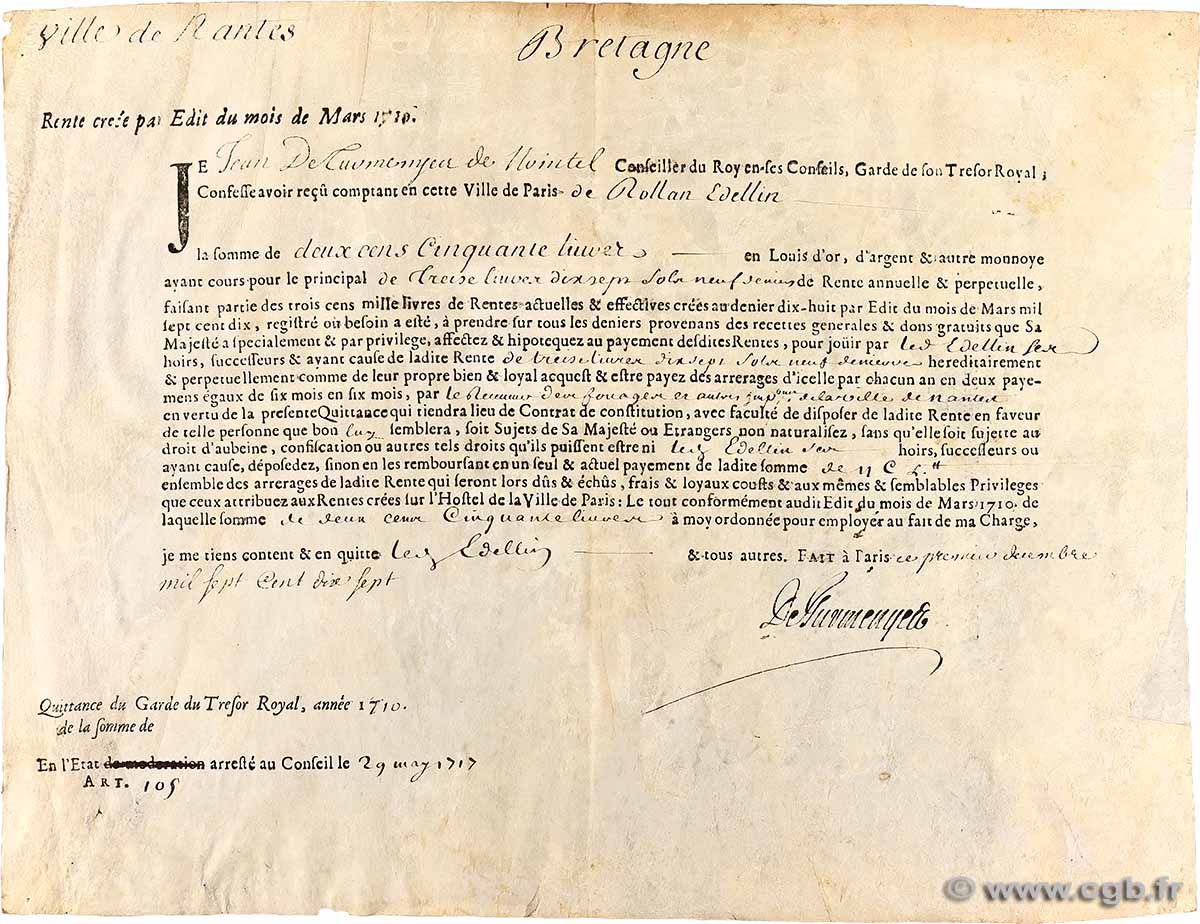 Ville de Nantes
Bretagne
Rente creée par Edit du mois de Mars 1710.
JE Jean DeTurmenyea de Nointel Conseiller du Roy en ses Conseils, Garde de son Tresor Royal;
Confesse avoir reçû comptant en cette Ville de Paris de Rollan Edellin
la somme de deux cens Cinquante livres en Louis d'or, d'argent & autre monnoye
ayant cours pour le principal de treise livres dix sept sols neuf deniers de Rente annuelle & perpetuelle,
faisant partie des trois cens mille livres de Rentes actuelles & effectives créés au denier dix-huit par Edit du mois de Mars mil
sept cent dix, registré où besoin a esté, à prendre sur tous les deniers provenans des recettes generales & dons gratuits que Sa
Majesté a specialement & par privilege, affectez & hipotequez au payement desdites Rentes, pour joüir par led Edellin ses
hoirs, successeurs & ayant cause de ladite Rente de treise livres dix sept sols neuf deniers hereditairement
& perpetuellement comme de leur propre bien & loyal acquest & estre payez des arrerages d'icelle par chacun an en deux paye-
mens égaux de six mois en six mois, par le Receveur des fouages et autres imp.ons de la ville de nantes
en vertu de la presente Quittance qui tiendra lieu de Contrat de constitution, avec faculté de disposer de ladite Rente en faveur
de telle personne que bon luy semblera, soit Sujets de Sa Majesté ou Etrangers non naturalisez, sans qu'elle soit sujette au
droit d'aubeine, confiscation ou autres tels droits qu'ils puissent estre ni led Edellin ses hoirs, successeurs ou
ayant cause, déposedez, sinon en les remboursant en un seul & actuel payement de ladite somme de II C L tt
ensemble des arrerages de ladite Rente qui seront lors dûs & échûs, frais & loyaux cousts & aux mêmes & semblables Privileges
que ceux attribuez aux Rentes crées sur l'Hostel de la Ville de Paris: Le tout conformément audit Edit du mois de Mars 1710. de
laquelle somme de deux cens Cinquante livres à moy ordonnée pour employer au fait de ma Charge,
je me tiens content & en quitte led Edellin & tous autres. FAIT à Paris ce premier decembre
mil sept Cent dix sept
DeTurmenyea
Quittance du Garde du Tresor Royal, année 1710.
de la somme de
En l'Etat de moderation arresté au Conseil le 29 may 1717
ART. 105
© www.cgb.fr